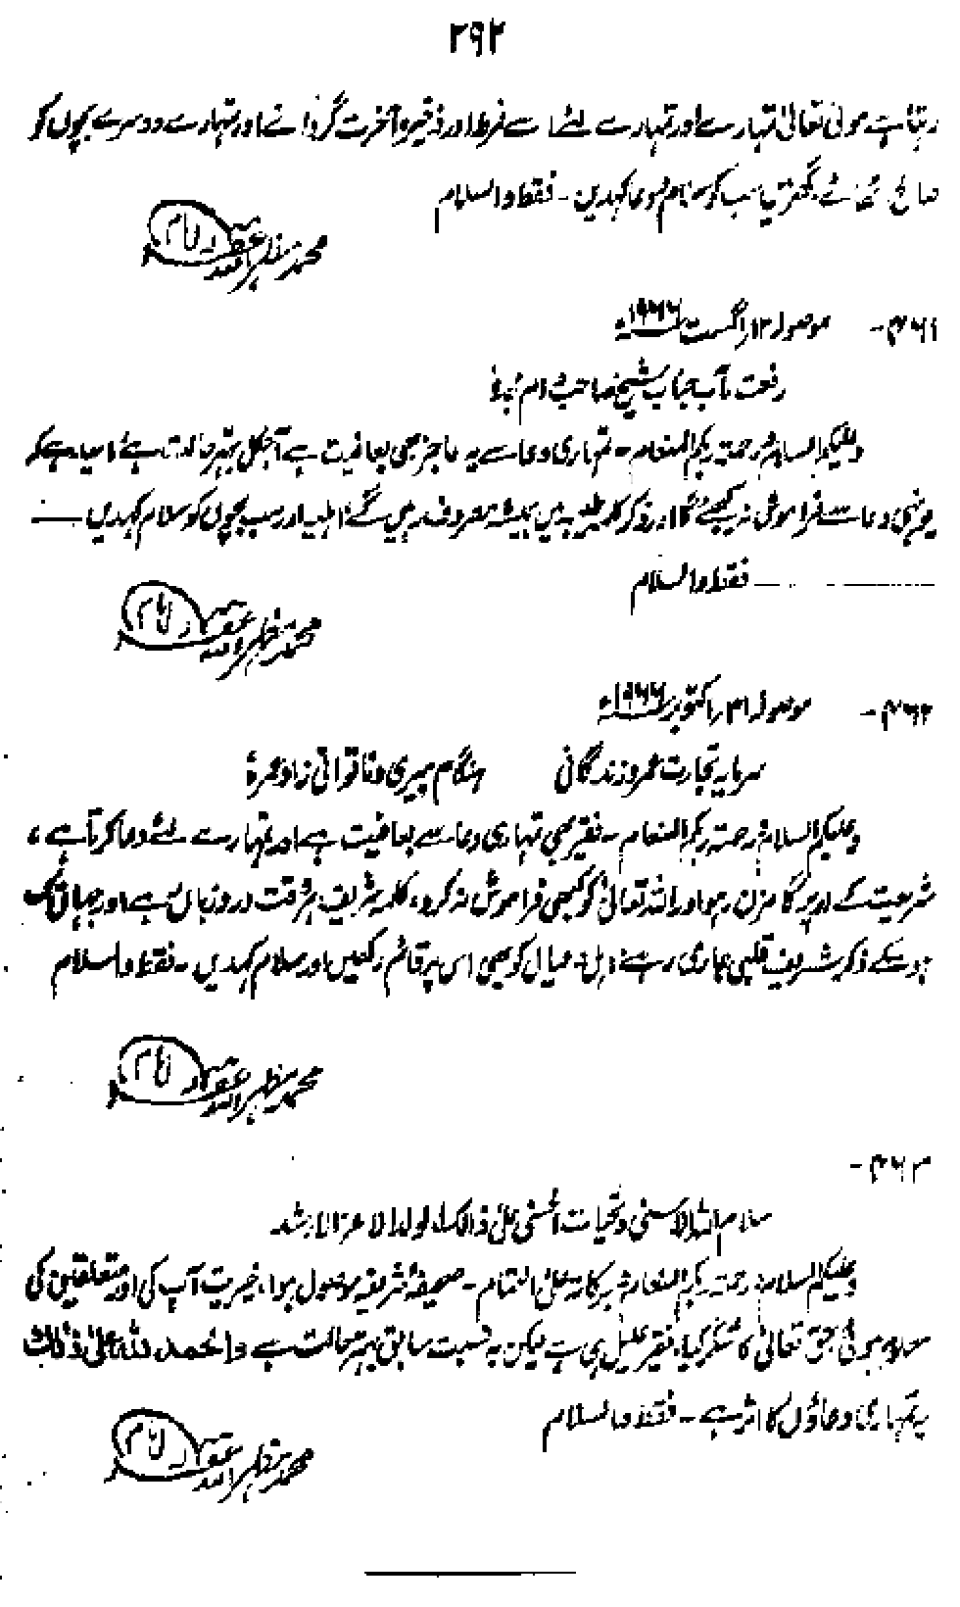 ۲۹۲
رہتا ہے مولیٰ تعالیٰ تمہارے اور تمہارے لئے اسے فرط اور ذخیرہ آخرت گردانے اور تمہارے دوسرے بچوں کو
صالح بنائے گھر میں سب کو سلام مسنون کہدیں - فقط والسلام
محمد مظہر اللہ غفرلہ
۴۶۱- موصولہ ۱۲ اگست ۱۹۶۶ء
رفعت مآب جناب شیخ صاحب دام مجدہٗ
وعلیکم السلام ثم رحمۃ ربکم المنعام - تمہاری دعا سے یہ عاجز بھی بعافیت ہے آجکل بہتر حالت ہے، امید ہے کہ
یونہی دعا سے فراموش نہ کیجئے گا اور ذکر کلمہ طیبہ میں ہمیشہ مصروف رہیں گے، اہلیہ اور سب بچوں کو سلام کہدیں
فقط والسلام
محمد مظہر اللہ غفرلہ
۴۶۲- موصولہ ۳۱ اکتوبر ۱۹۶۶ء
سرمایہ تجارت عمر و زندگانی ہنگام پیری و ناتوانی زاد عمرہٗ
وعلیکم السلام ثم رحمۃ ربکم المنعام - فقیر بھی تمہاری دعا سے بعافیت ہے اور تمہارے لئے دعا کرتا ہے،
شریعت کے اوپر گامزن رہو اور اللہ تعالیٰ کو کبھی فراموش نہ کرو، کلمہ شریف ہر وقت ورد زباں رہے اور جہاں تک
ہو سکے ذکر شریف قلبی جاری رہے، اہل و عیال کو بھی اس پر قائم رکھیں اور سلام کہدیں - فقط والسلام
محمد مظہر اللہ غفرلہ
۴۶۳-
سلام اللہ الاسنی و تحیات الحسنی علی ذالک الولد الاعز الارشد
وعلیکم السلام ثم رحمۃ ربکم المنعام ثم برکاتہ علی التمام - صحیفہ شریفہ موصول ہوا، خیریت آپ کی اور متعلقین کی
معلوم ہوئی حق تعالیٰ کا شکر کیا، فقیر علیل ہی ہے لیکن بہ نسبت سابق بہتر حالت ہے والحمد للہ علی ذالک
یہ تمہاری دعاؤں کا اثر ہے - فقط والسلام
محمد مظہر اللہ غفرلہ